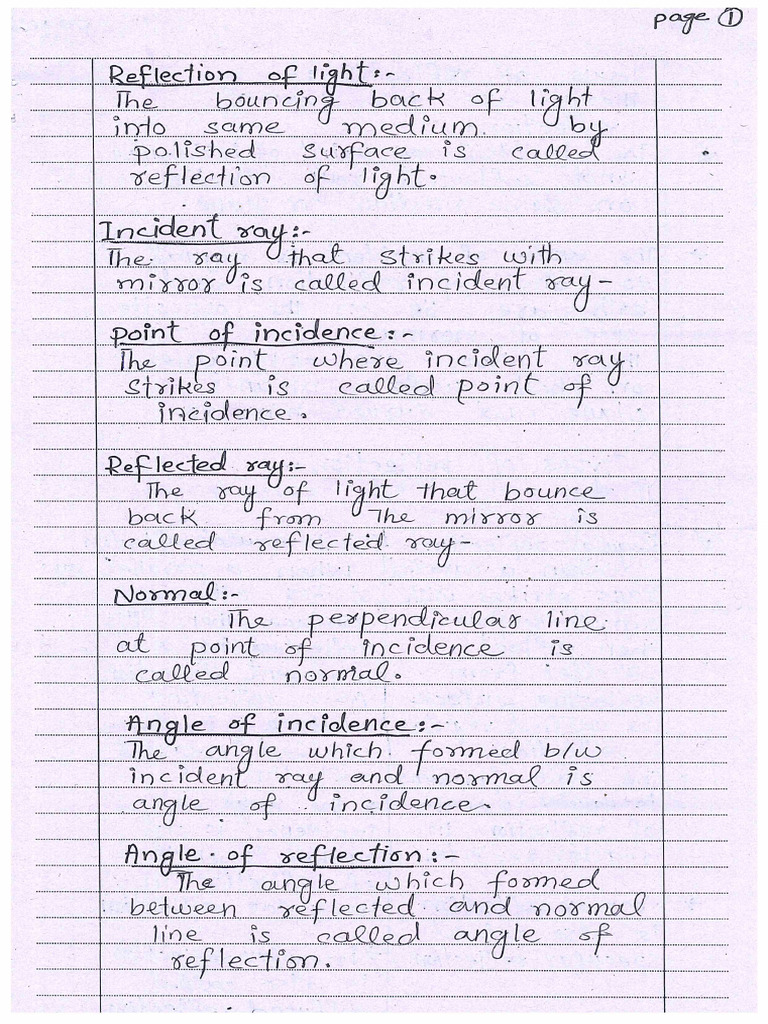 page ①
Reflection of light:-
The bouncing back of light
into same medium by
polished surface is called
reflection of light.
Incident ray:-
The ray that strikes with
mirror is called incident ray-
point of incidence:-
The point where incident ray
strikes is called point of
incidence.
Reflected ray:-
The ray of light that bounce
back from the mirror is
called reflected ray-
Normal:-
The perpendicular line
at point of incidence is
called normal.
Angle of incidence:-
The angle which formed b/w
incident ray and normal is
angle of incidence.
Angle of reflection:-
The angle which formed
between reflected and normal
line is called angle of
reflection.